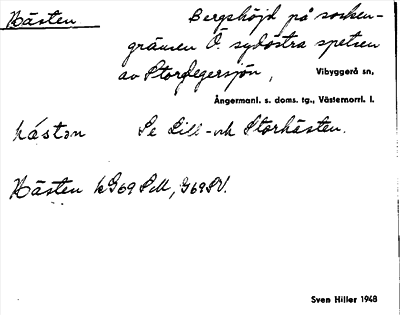 Hästen Bergshöjd på socken-
gränsen Ö. sydöstra spetsen
av Stordegersjön, Vibyggerå sn,
Ångermanl. s. doms. tg., Västernorrl. l.
hástən Se Lill- och Storhästen.
Hästen kG69SM, G69SV.
Sven Hiller 1948